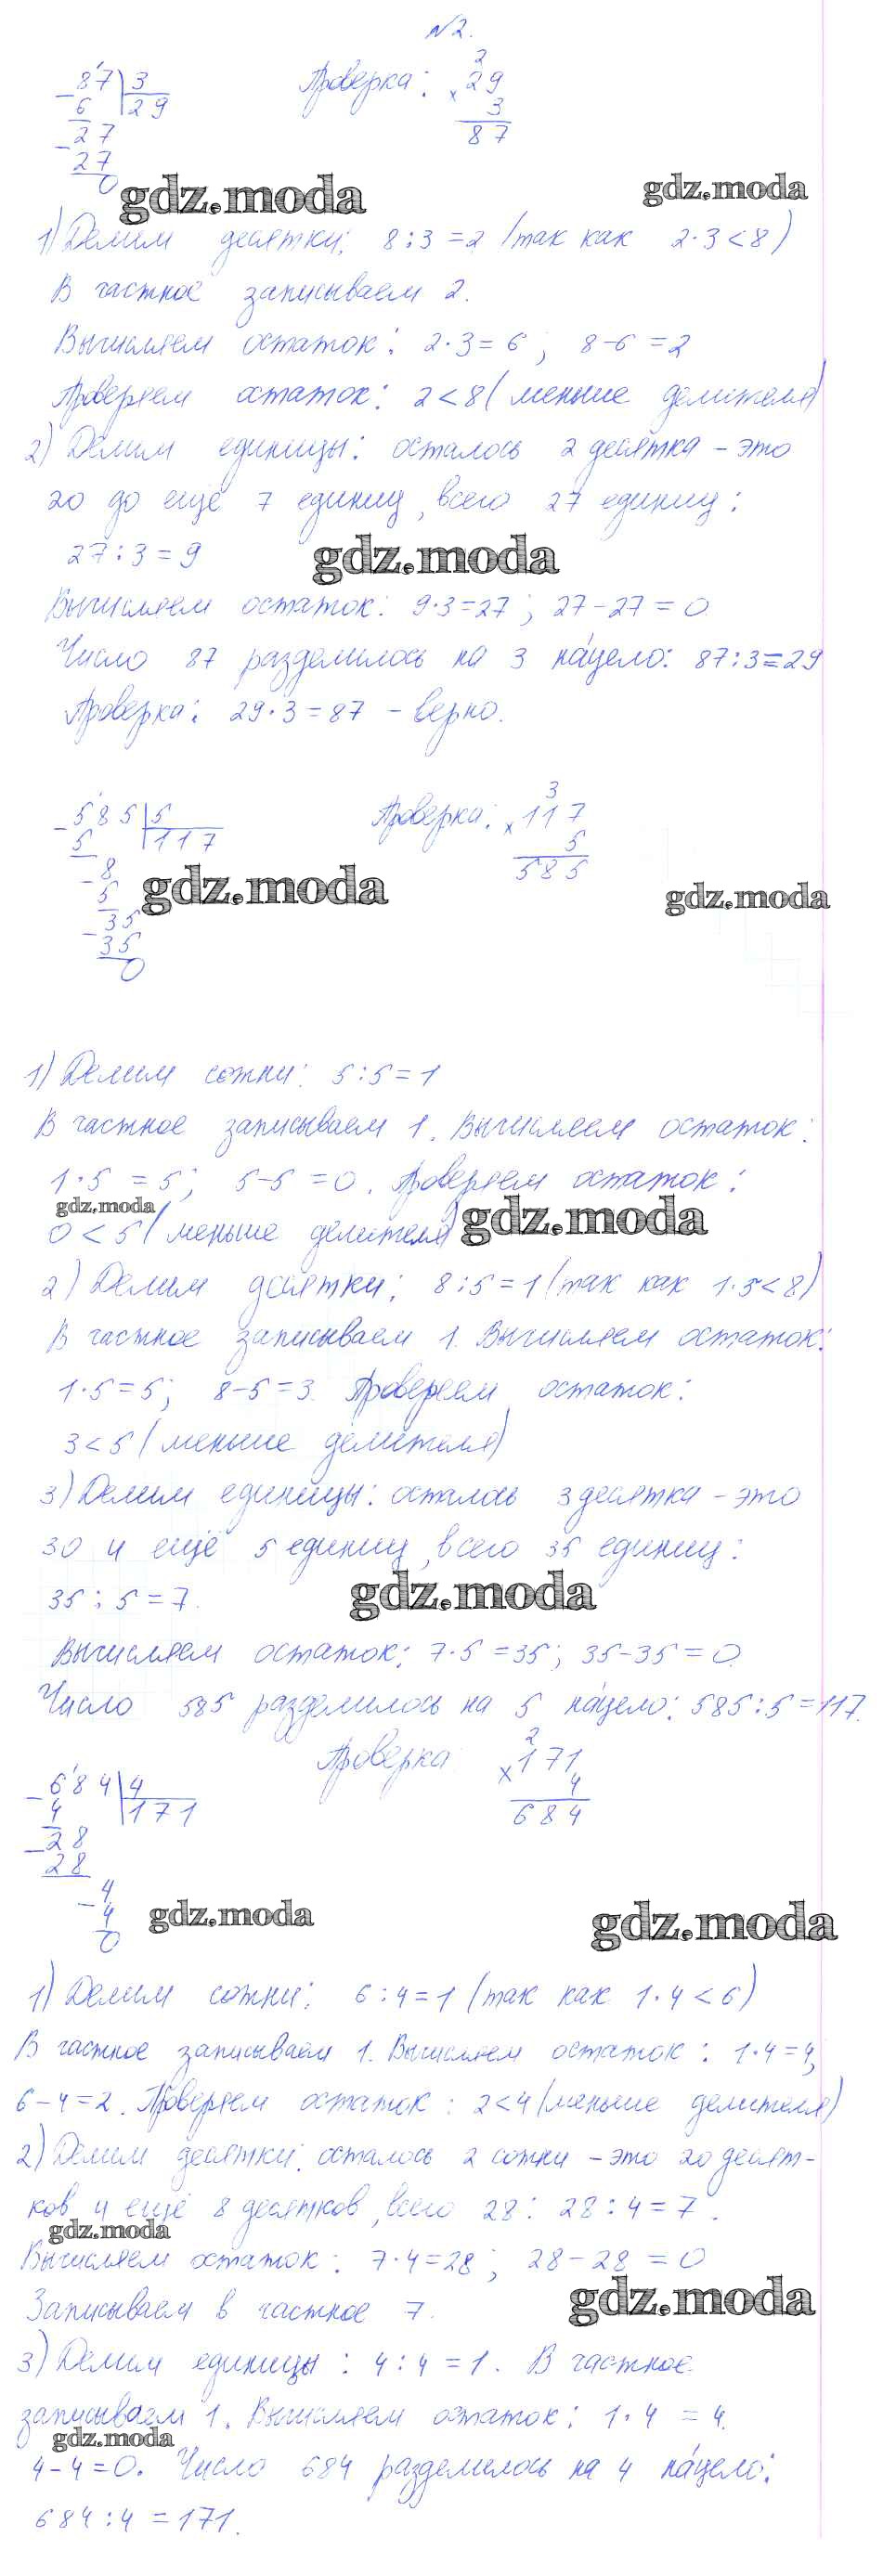 №2.
87 3 Проверка: 2
6 29 × 29
27 3
27 87
0
gdz.moda gdz.moda
1) Делим десятки: 8:3=2 (так как 2·3<8)
В частное записываем 2.
Вычисляем остаток: 2·3=6; 8-6=2
Проверяем остаток: 2<8 (меньше делителя)
2) Делим единицы: осталось 2 десятка - это
20 до ещё 7 единиц, всего 27 единиц:
27:3=9
gdz.moda
Вычисляем остаток: 9·3=27; 27-27=0
Число 87 разделилось на 3 нацело: 87:3=29
Проверка: 29·3=87 - верно.
585 5 Проверка: 3
5 117 × 117
8 5
5 585
35
35
0
gdz.moda gdz.moda
1) Делим сотни: 5:5=1
В частное записываем 1. Вычисляем остаток:
1·5=5; 5-5=0. Проверяем остаток:
gdz.moda gdz.moda
0<5 (меньше делителя)
2) Делим десятки: 8:5=1 (так как 1·5<8)
В частное записываем 1. Вычисляем остаток:
1·5=5; 8-5=3. Проверяем остаток:
3<5 (меньше делителя)
3) Делим единицы: осталось 3 десятка - это
30 и ещё 5 единиц, всего 35 единиц:
35:5=7.
gdz.moda
Вычисляем остаток: 7·5=35; 35-35=0.
Число 585 разделилось на 5 нацело: 585:5=117.
684 4 Проверка 2
4 171 × 171
28 4
28 684
4
4
0
gdz.moda gdz.moda
1) Делим сотни: 6:4=1 (так как 1·4<6)
В частное записываем 1. Вычисляем остаток: 1·4=4,
6-4=2. Проверяем остаток: 2<4 (меньше делителя)
2) Делим десятки: осталось 2 сотни - это 20 десят-
ков и ещё 8 десятков, всего 28: 28:4=7.
gdz.moda
Вычисляем остаток: 7·4=28; 28-28=0
gdz.moda
Записываем в частное 7.
3) Делим единицы: 4:4=1. В частное
записываем 1. Вычисляем остаток: 1·4=4.
gdz.moda
4-4=0. Число 684 разделилось на 4 нацело:
684:4=171.